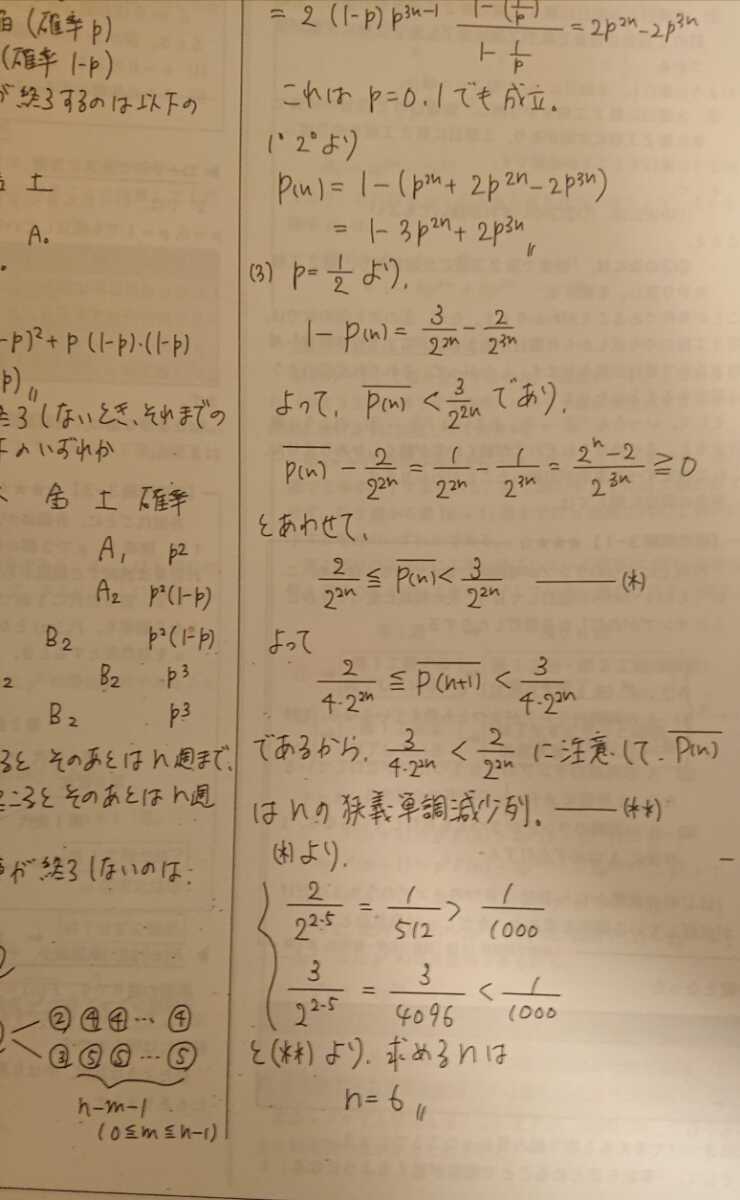 白 (確率 p)
(確率 1-p)
が終了するのは以下の
土
A.
-p)²+p(1-p)・(1-p)
p)〃
終了しないとき、それまでの
下のいずれか
金 土 確率
A₁ p²
A₂ p²(1-p)
B₂ p²(1-p)
₂ B₂ p³
B₂ p³
ると そのあとは n週まで、
ところと そのあとは n週
が終了しないのは:
② ④ ④ … ④
③ ⑤ ⑤ … ⑤
n-m-1
(0≦m≦n-1)
= 2 (1-p) p^{3n-1} \frac{1-(\frac{1}{p})}{1-\frac{1}{p}} = 2p^{2n}-2p^{3n}
これは p=0.1でも成立.
1° 2°より
P(n) = 1-(p^{2n}+2p^{2n}-2p^{3n})
= 1-3p^{2n}+2p^{3n}〃
(3) p=\frac{1}{2} より,
1-P(n) = \frac{3}{2^{2n}} - \frac{2}{2^{3n}}
よって, \overline{P(n)} < \frac{3}{2^{2n}} であり,
\overline{P(n)} - \frac{2}{2^{2n}} = \frac{1}{2^{2n}} - \frac{1}{2^{3n}} = \frac{2^n-2}{2^{3n}} ≧ 0
とあわせて,
\frac{2}{2^{2n}} ≦ \overline{P(n)} < \frac{3}{2^{2n}} ——(*)
よって
\frac{2}{4・2^{2n}} ≦ \overline{P(n+1)} < \frac{3}{4・2^{2n}}
であるから, \frac{3}{4・2^{2n}} < \frac{2}{2^{2n}} に注意して, \overline{P(n)}
は n の狭義単調減少列. ——(**)
(*)より,
\frac{2}{2^{2・5}} = \frac{1}{512} > \frac{1}{1000}
\frac{3}{2^{2・5}} = \frac{3}{4096} < \frac{1}{1000}
と(**)より, 求めるnは
n=6〃